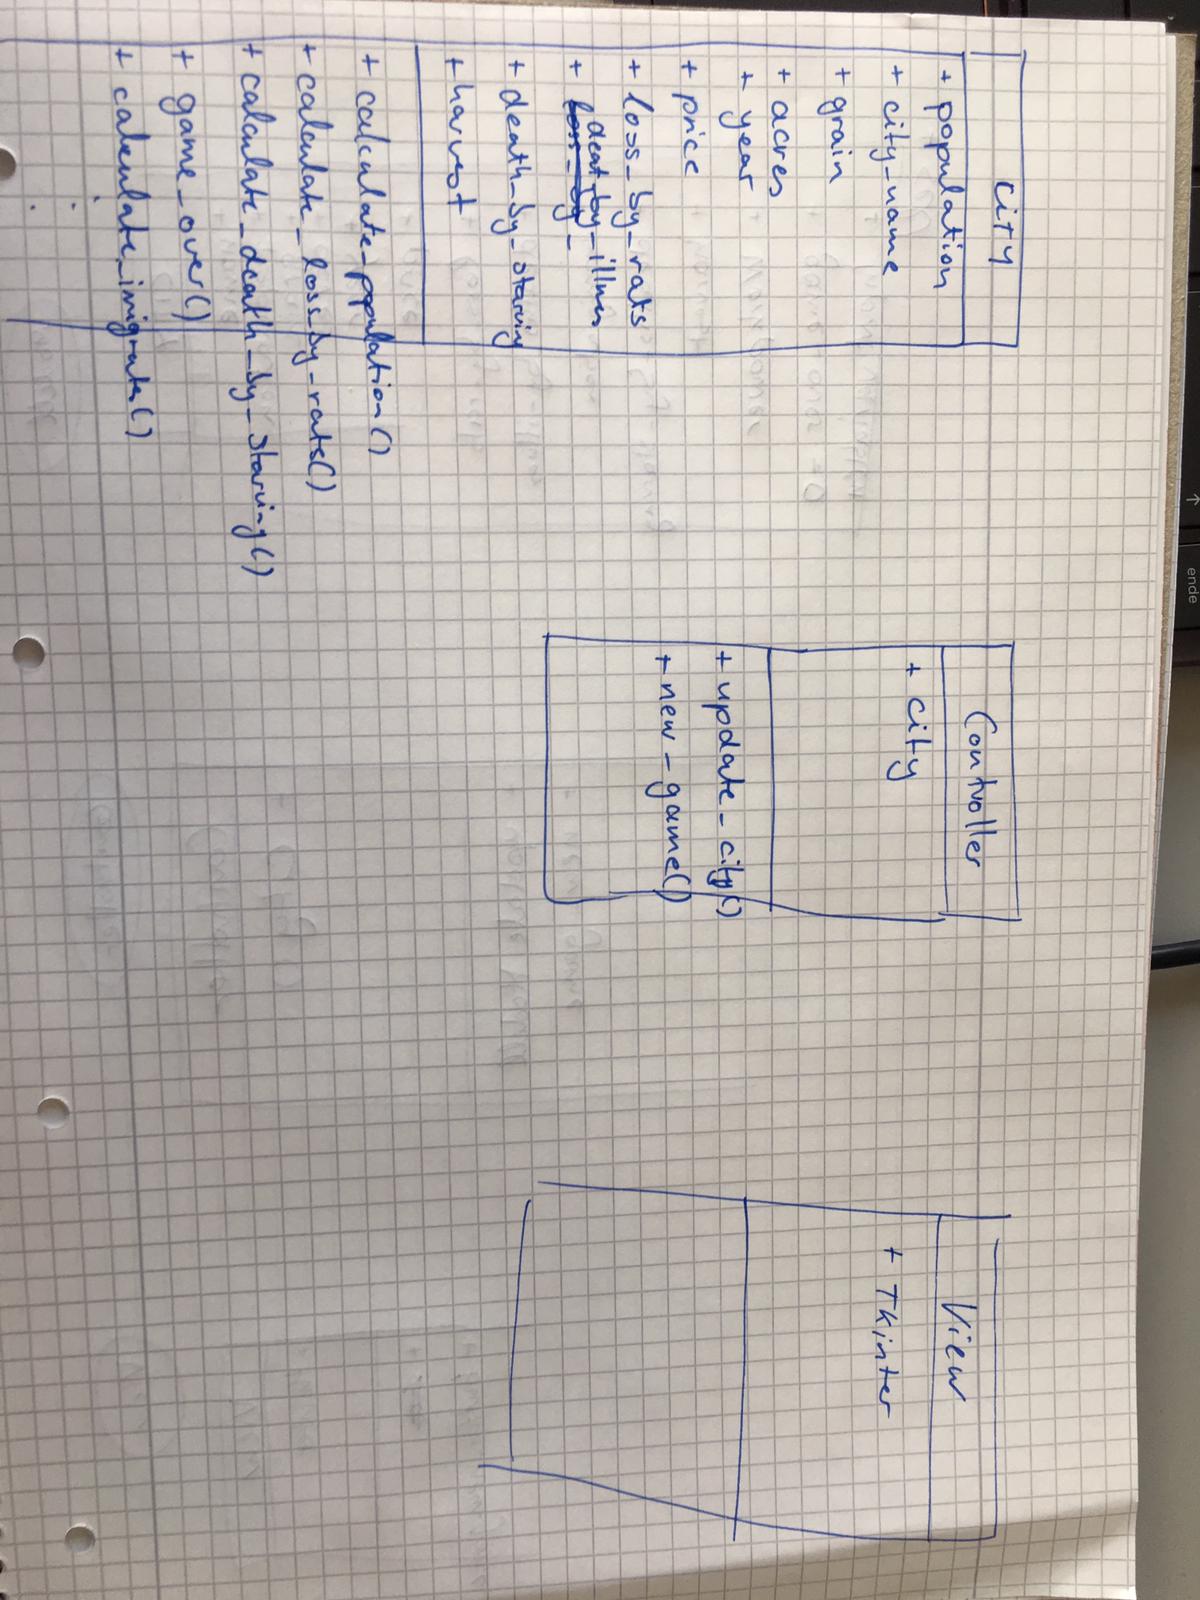 ende
CITY
+ population
+ city_name
+ grain
+ acres
+ year
+ price
+ loss_by_rats
deat_by_illnes
+ loss_by_
+ death_by_starving
+ harvest
+ calculate_population()
+ calculate_loss_by_rats()
+ calculate_death_by_starving()
+ game_over()
+ calculate_imigrates()
Controller
+ city
+ update_city()
+ new_game()
View
+ Tkinter